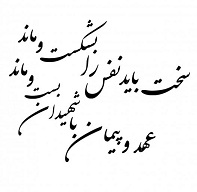 سخت باید نفس را بشکست و ماند
عهد و پیمان با شهیدان بست و ماند